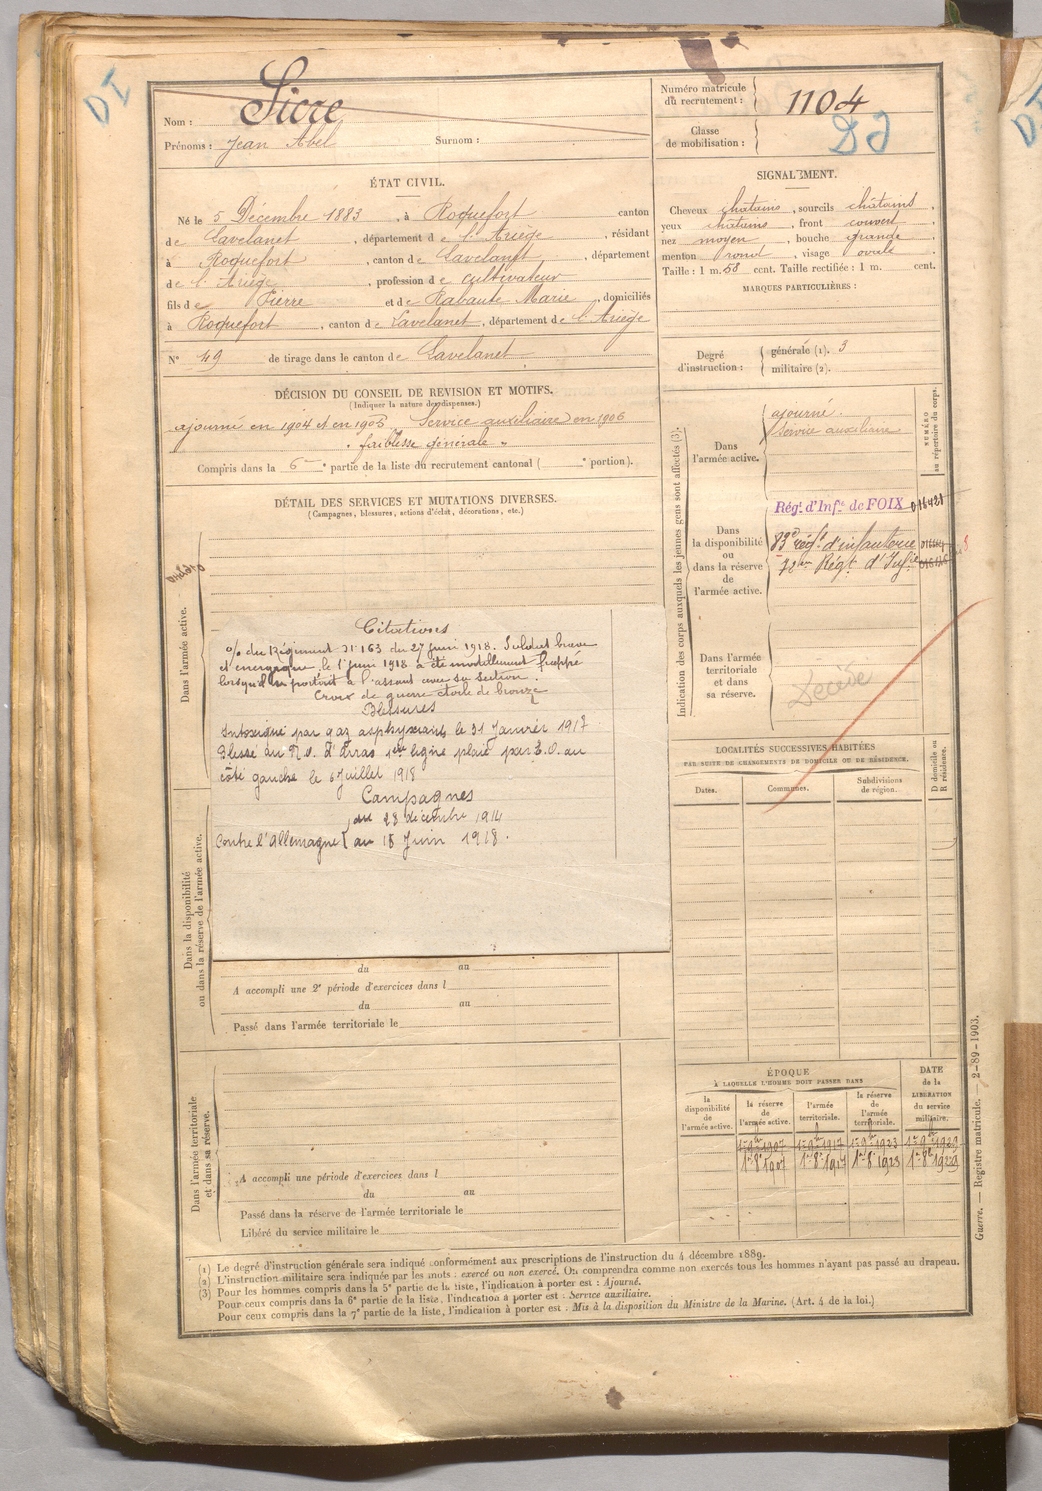 DI
Nom : Sicre
Prénoms : Jean Abel Surnom :
Numéro matricule du recrutement : 1104
Classe de mobilisation :
ÉTAT CIVIL.
Né le 5 Décembre 1883, à Roquefort canton
de Lavelanet, département de l'Ariège, résidant
à Roquefort, canton de Lavelanet, département
de l'Ariège, profession de cultivateur
fils de Pierre et de Rabaute Marie, domiciliés
à Roquefort, canton de Lavelanet, département de l'Ariège
N° 49 de tirage dans le canton de Lavelanet
SIGNALEMENT.
Cheveux châtains, sourcils châtains,
yeux châtains, front couvert
nez moyen, bouche grande
menton rond, visage ovale
Taille : 1 m. 58 cent. Taille rectifiée : 1 m. cent.
MARQUES PARTICULIÈRES :
Degré d'instruction : générale (1). 3
militaire (2).
DÉCISION DU CONSEIL DE REVISION ET MOTIFS.
(Indiquer la nature des dispenses.)
ajourné en 1904 et en 1905, Service auxiliaire en 1906
" faiblesse générale "
Compris dans la 6e partie de la liste du recrutement cantonal ( e portion).
DÉTAIL DES SERVICES ET MUTATIONS DIVERSES.
(Campagnes, blessures, actions d'éclat, décorations, etc.)
Dans l'armée active.
Citations
O/ du Régiment N° 163 du 27 juin 1918. Soldat brave
et énergique, le 1er juin 1918 a été mortellement frappé
lorsqu'il se portait à l'assaut avec sa section.
Croix de guerre étoile de bronze
Blessures
Intoxiqué par gaz asphyxiants le 31 Janvier 1917
Blessé au N.O. d'Arras 1ère ligne plaie par E.O. au
côté gauche le 6 Juillet 1918
Campagnes
du 28 décembre 1914
Contre l'Allemagne au 15 Juin 1918.
Dans la disponibilité
ou dans la réserve de l'armée active.
du au
A accompli une 2e période d'exercices dans l
du au
Passé dans l'armée territoriale le
Dans l'armée territoriale
et dans sa réserve.
A accompli une période d'exercices dans l
du au
Passé dans la réserve de l'armée territoriale le
Libéré du service militaire le
Indication des corps auxquels les jeunes gens sont affectés (3).
NUMÉRO
au répertoire du corps.
Dans l'armée active.
ajourné.
Service auxiliaire
Dans la disponibilité ou dans la réserve de l'armée active.
Régt. d'Infie. de FOIX 016421
83e régt d'infanterie
72ème Régt d'Infie
Dans l'armée territoriale et dans sa réserve.
Décédé
LOCALITÉS SUCCESSIVES HABITÉES
PAR SUITE DE CHANGEMENTS DE DOMICILE OU DE RÉSIDENCE.
Dates. Communes. Subdivisions de région. D domicile ou R résidence.
ÉPOQUE
À LAQUELLE L'HOMME DOIT PASSER DANS
la disponibilité de l'armée active. la réserve de l'armée active. l'armée territoriale. la réserve de l'armée territoriale. DATE de la LIBÉRATION du service militaire.
1er 9bre 1907 1er 9bre 1917 1er 9bre 1923 1er 9bre 1929
1er 8bre 1907 1er 8bre 1917 1er 8bre 1923 1er 8bre 1929
(1) Le degré d'instruction générale sera indiqué conformément aux prescriptions de l'instruction du 4 décembre 1889.
(2) L'instruction militaire sera indiquée par les mots : exercé ou non exercé. On comprendra comme non exercés tous les hommes n'ayant pas passé au drapeau.
(3) Pour les hommes compris dans la 5e partie de la liste, l'indication à porter est : Ajourné.
Pour ceux compris dans la 6e partie de la liste, l'indication à porter est : Service auxiliaire.
Pour ceux compris dans la 7e partie de la liste, l'indication à porter est : Mis à la disposition du Ministre de la Marine. (Art. 4 de la loi.)
Guerre. — Registre matricule. — 2-89-1903.